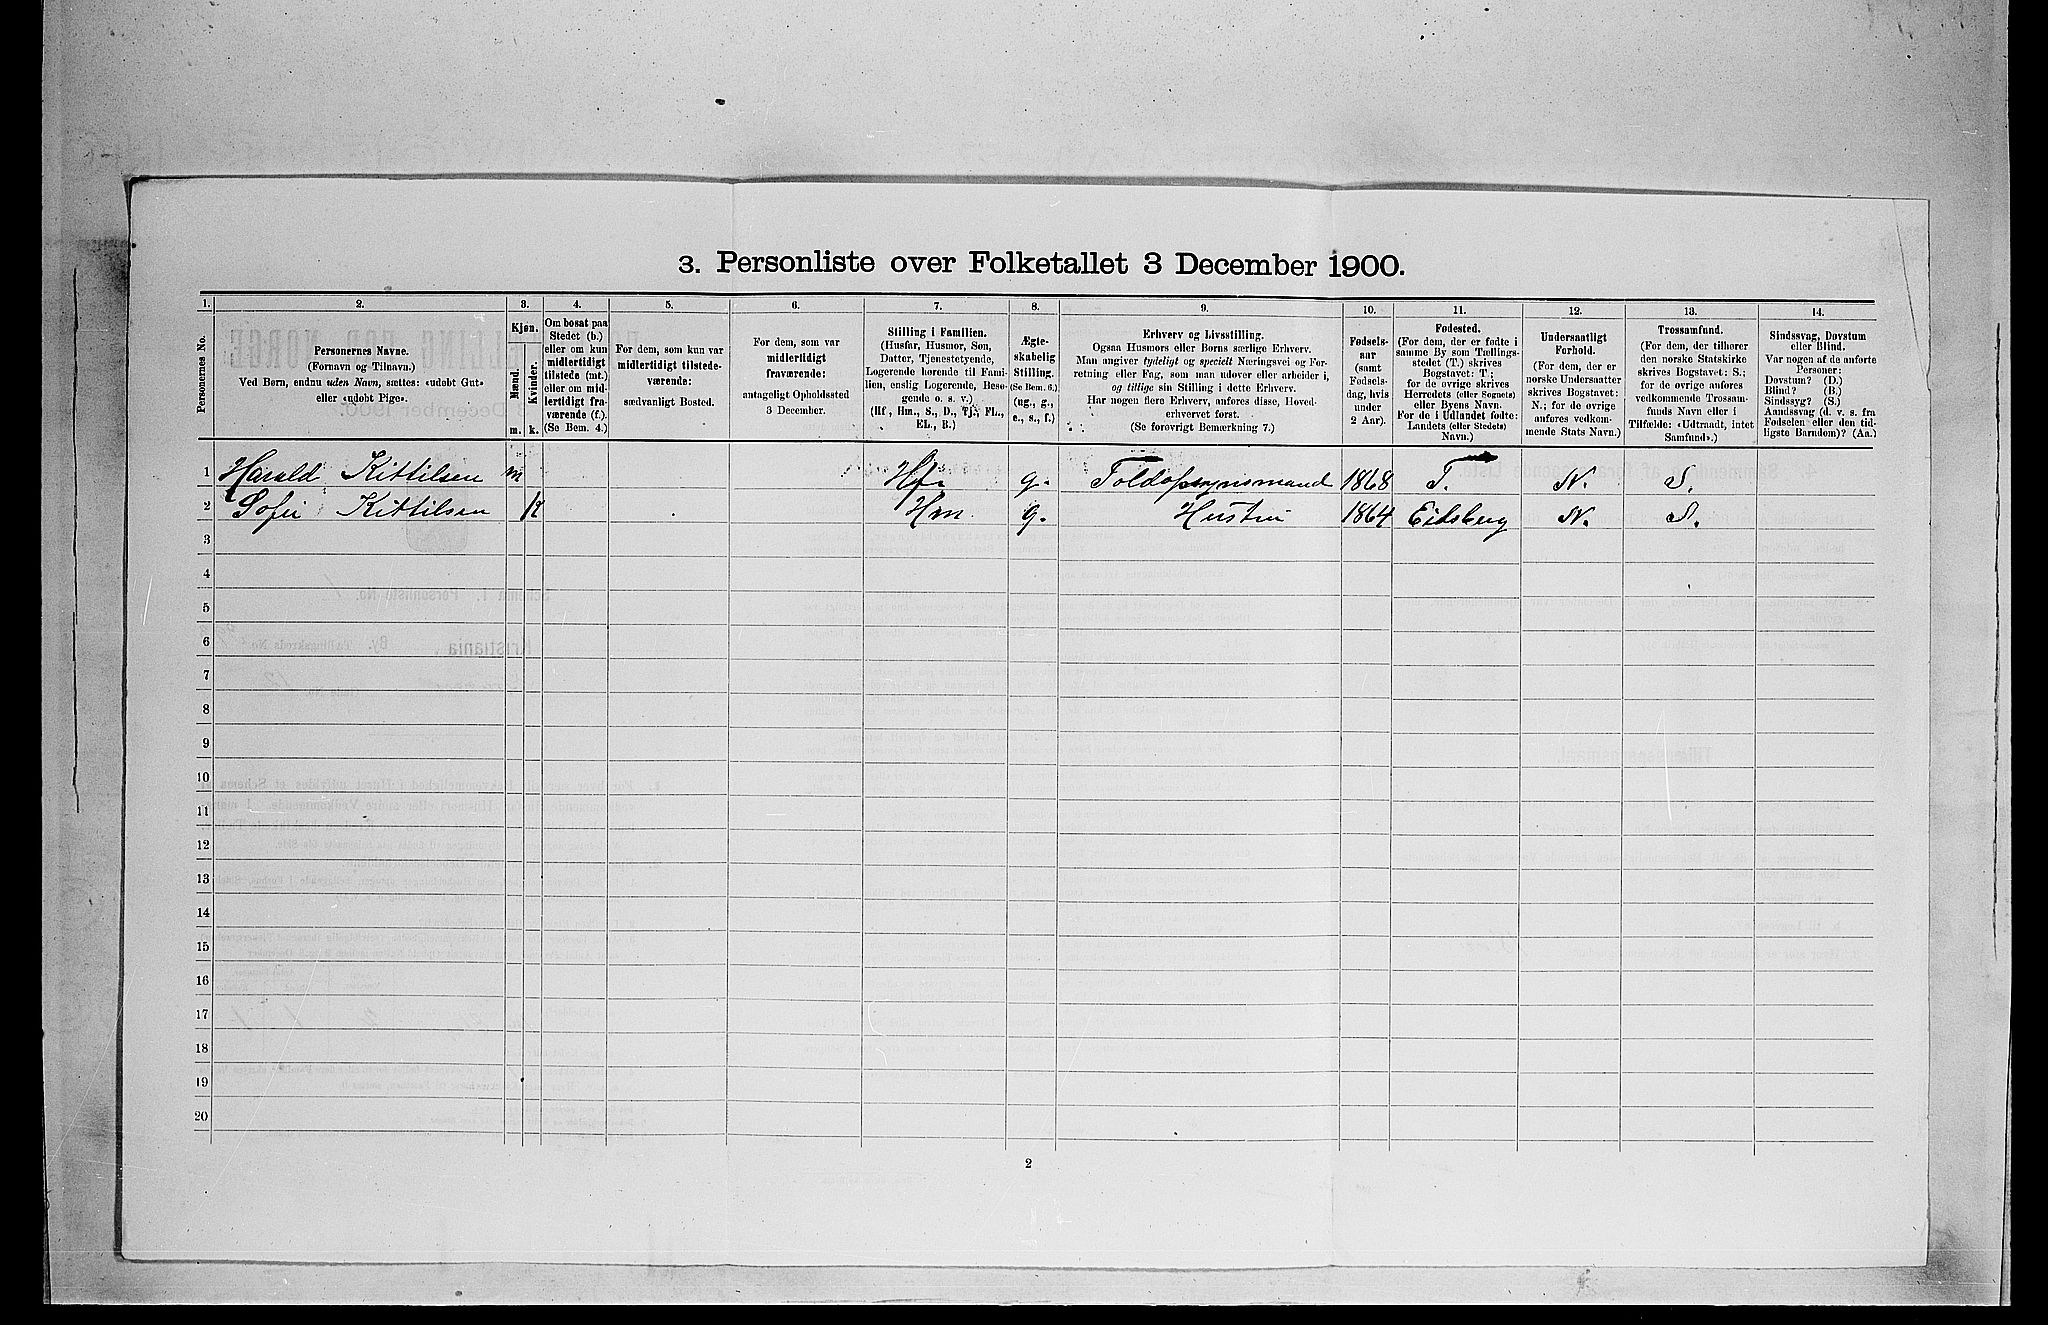 3. Personliste over Folketallet 3 December 1900.
1. 2. 3. 4. 5. 6. 7. 8. 9. 10. 11. 12. 13. 14.
Personernes No.
Personernes Navne.
(Fornavn og Tilnavn.)
Ved Børn, endnu uden Navn, sættes: «udøbt Gut»
eller «udøbt Pige».
Kjøn.
Mænd.
Kvinder.
m. k.
Om bosat paa
Stedet (b.)
eller om kun
midlertidigt
tilstede (mt.)
eller om mid-
lertidigt fra-
værende (f.).
(Se Bem. 4.)
For dem, som kun var
midlertidigt tilstede-
værende:
sædvanligt Bosted.
For dem, som var
midlertidigt
fraværende:
antageligt Opholdssted
3 December.
Stilling i Familien.
(Husfar, Husmor, Søn,
Datter, Tjenestetyende,
Logerende hørende til Fami-
lien, enslig Logerende, Besø-
gende o. s. v.)
(Hf, Hm., S., D., Tj., FL.,
EL., B.)
Ægte-
skabelig
Stilling.
(Se Bem. 6.)
(ug., g.,
e., s., f.)
Erhverv og Livsstilling.
Ogsaa Husmors eller Børns særlige Erhverv.
Man angiver tydeligt og specielt Næringsvei og For-
retning eller Fag, som man udøver eller arbeider i,
og tillige sin Stilling i dette Erhverv.
Har nogen flere Erhverv, anføres disse, Hoved-
erhvervet først.
(Se forøvrigt Bemærkning 7.)
Fødsels-
aar
(samt
Fødsels-
dag, hvis
under
2 Aar).
Fødested.
(For dem, der er fødte i
samme By som Tællings-
stedet (T.) skrives
Bogstavet: T.;
for de øvrige skrives
Herredets (eller Sognets)
eller Byens Navn.
For de i Udlandet fødte:
Landets (eller Stedets)
Navn.)
Undersaatligt
Forhold.
(For dem, der er
norske Undersaatter
skrives Bogstavet:
N.; for de øvrige
anføres vedkom-
mende Stats Navn.)
Trossamfund.
(For dem, der tilhører
den norske Statskirke
skrives Bogstavet: S.;
for de øvrige anføres
vedkommende Trossam-
funds Navn eller i
Tilfælde: «Udtraadt, intet
Samfund».)
Sindssvag, Døvstum
eller Blind.
Var nogen af de anførte
Personer:
Døvstum? (D.)
Blind? (B.)
Sindssyg? (S.)
Aandssvag (d. v. s. fra
Fødselen eller den tid-
ligste Barndom)? (Aa.)
1 Harald Kittilsen m Hf. g. Toldopsynsmand 1868 T. N. S.
2 Sofie Kittilsen k Hm g. Hustru 1864 Eidsberg N. S.
3
4
5
6
7
8
9
10
11
12
13
14
15
16
17
18
19
20
2